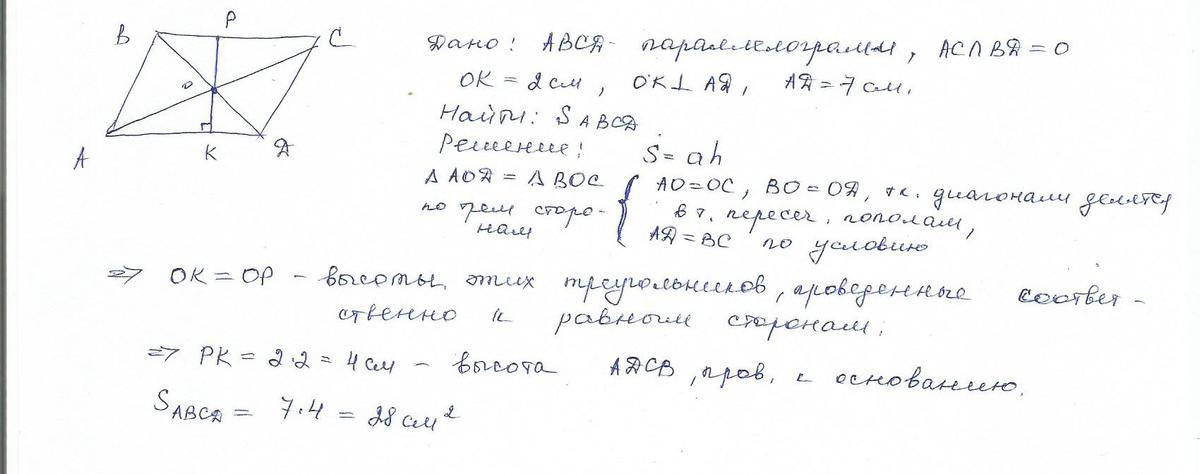 B P C
O
A K D
Дано: ABCD - параллелограмм, AC∩BD = O
OK = 2 см, OK⊥AD, AD = 7 см.
Найти: S ABCD
Решение: S = ah
△AOD = △BOC { AO=OC, BO=OD, т.к. диагонали делятся
по трем сторо- в т. пересеч. пополам,
нам AD=BC по условию
=> OK = OP - высоты этих треугольников, проведенные соответ-
ственно к равным сторонам;
=> PK = 2·2 = 4 см - высота ADCB, пров. к основанию.
S ABCD = 7·4 = 28 см²